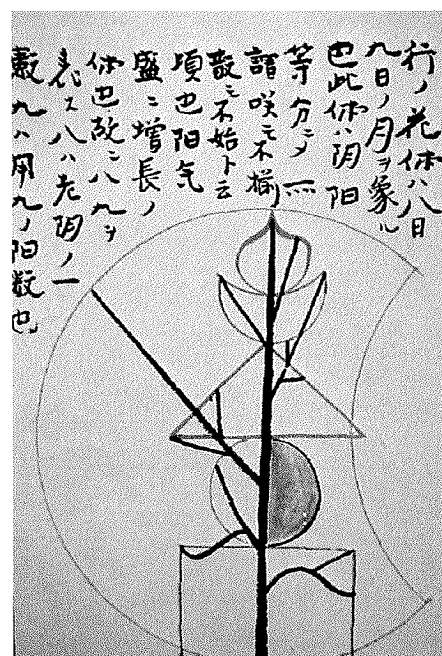 行ノ花体ハ八日
九日ノ月ヲ象ル
也此体ハ阴阳
等分ニノ
諳咲モ不揃
散モ不始ト云
頃也阳気
盛ニ增長ノ
体也故ニ八九ヲ
表ス八ハ老阴ノ一
數九ハ用九ノ阳数也